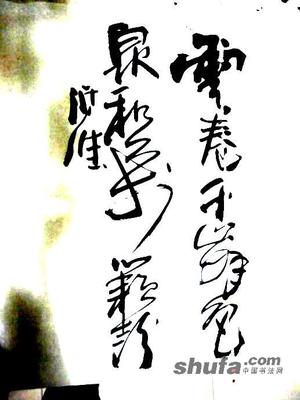 雲卷千峰色
泉和萬籟
shufa.com
中国书法网